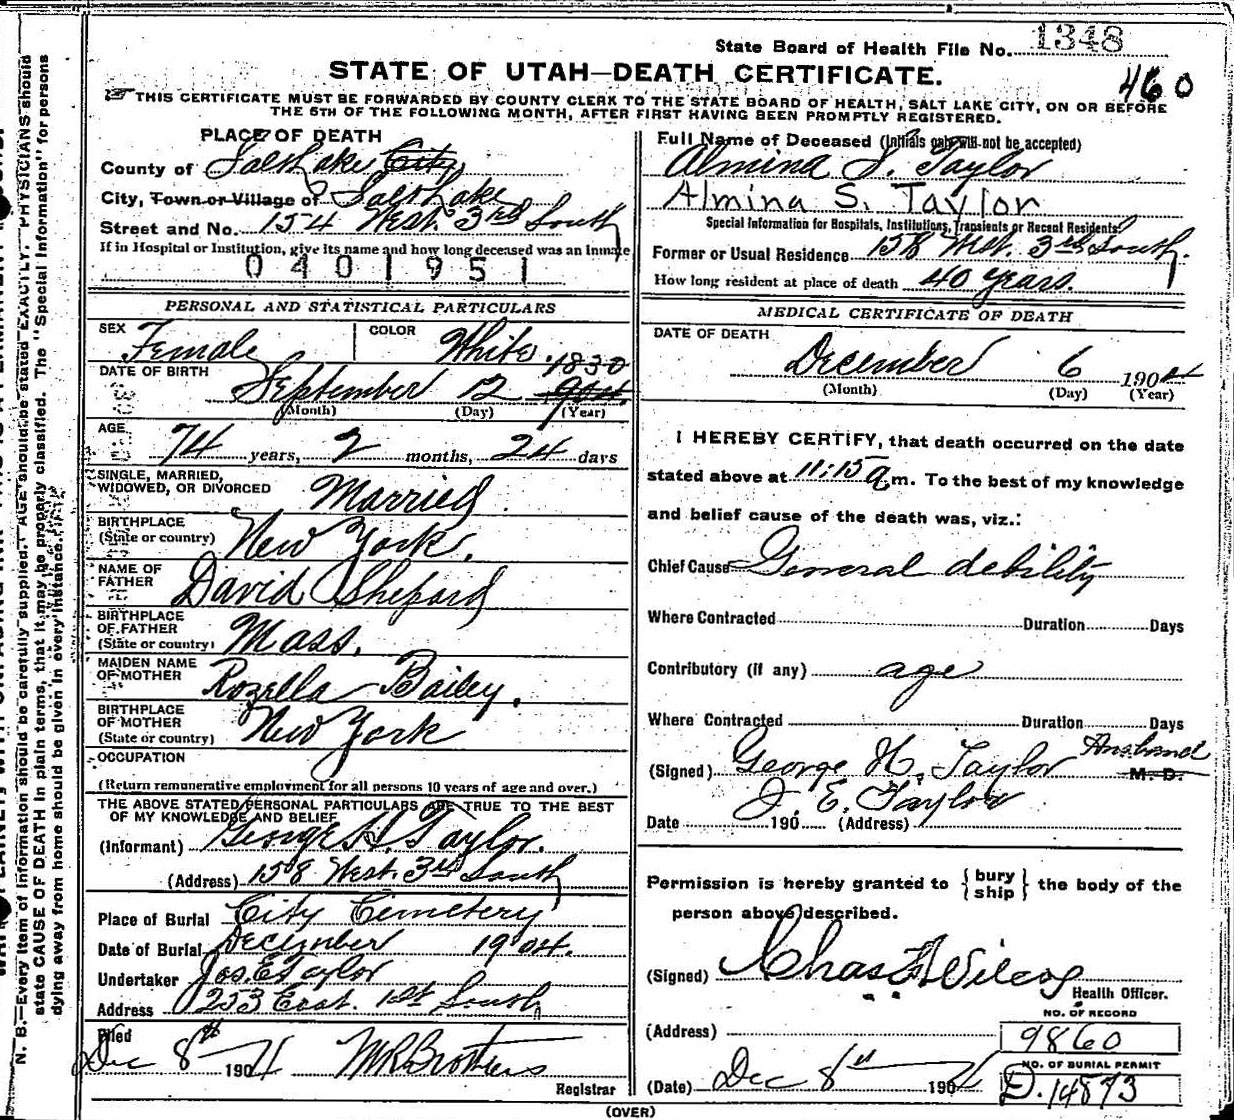 State Board of Health File No. 1348
STATE OF UTAH—DEATH CERTIFICATE.
460
THIS CERTIFICATE MUST BE FORWARDED BY COUNTY CLERK TO THE STATE BOARD OF HEALTH, SALT LAKE CITY, ON OR BEFORE
THE 5TH OF THE FOLLOWING MONTH, AFTER FIRST HAVING BEEN PROMPTLY REGISTERED.
PLACE OF DEATH
County of Salt Lake City
City, Town or Village of Salt Lake
Street and No. 154 West. 3rd South
If in Hospital or Institution, give its name and how long deceased was an inmate
0401951
PERSONAL AND STATISTICAL PARTICULARS
SEX Female COLOR White
1830
DATE OF BIRTH September 12 904
(Month) (Day) (Year)
AGE 74 years, 2 months, 24 days
SINGLE, MARRIED,
WIDOWED, OR DIVORCED Married
BIRTHPLACE
(State or country) New York.
NAME OF
FATHER David Shepard
BIRTHPLACE
OF FATHER
(State or country) Mass.
MAIDEN NAME
OF MOTHER Rozella Bailey.
BIRTHPLACE
OF MOTHER
(State or country) New York
OCCUPATION
(Return remunerative employment for all persons 10 years of age and over.)
THE ABOVE STATED PERSONAL PARTICULARS ARE TRUE TO THE BEST
OF MY KNOWLEDGE AND BELIEF
(Informant) George H. Taylor.
(Address) 158 West. 3rd South
Place of Burial City Cemetery
Date of Burial December 1904.
Undertaker Jos. E. Taylor
Address 253 East. 1st South
Filed
Dec 8th 1904
Registrar
Full Name of Deceased (Initials only will not be accepted)
Almina S. Taylor
Almina S. Taylor
Special Information for Hospitals, Institutions, Transients or Recent Residents.
Former or Usual Residence 158 West. 3rd South.
How long resident at place of death 40 years.
MEDICAL CERTIFICATE OF DEATH
DATE OF DEATH
December 6 1904
(Month) (Day) (Year)
I HEREBY CERTIFY, that death occurred on the date
stated above at 11:15 a m. To the best of my knowledge
and belief cause of the death was, viz.:
Chief Cause General debility
Where Contracted Duration Days
Contributory (if any) age
Where Contracted Duration Days
(Signed) George H. Taylor Husband M. D.
J. E. Taylor
Date 190 (Address)
Permission is hereby granted to {bury ship} the body of the
person above described.
(Signed) Chas F Wilcox
Health Officer.
(Address)
NO. OF RECORD
9860
NO. OF BURIAL PERMIT
D. 14873
(Date) Dec 8th 1904
(OVER)
N. B.—Every item of information should be carefully supplied. AGE should be stated EXACTLY. PHYSICIANS should
state CAUSE OF DEATH in plain terms, that it may be properly classified. The "Special Information" for persons
dying away from home should be given in every instance.